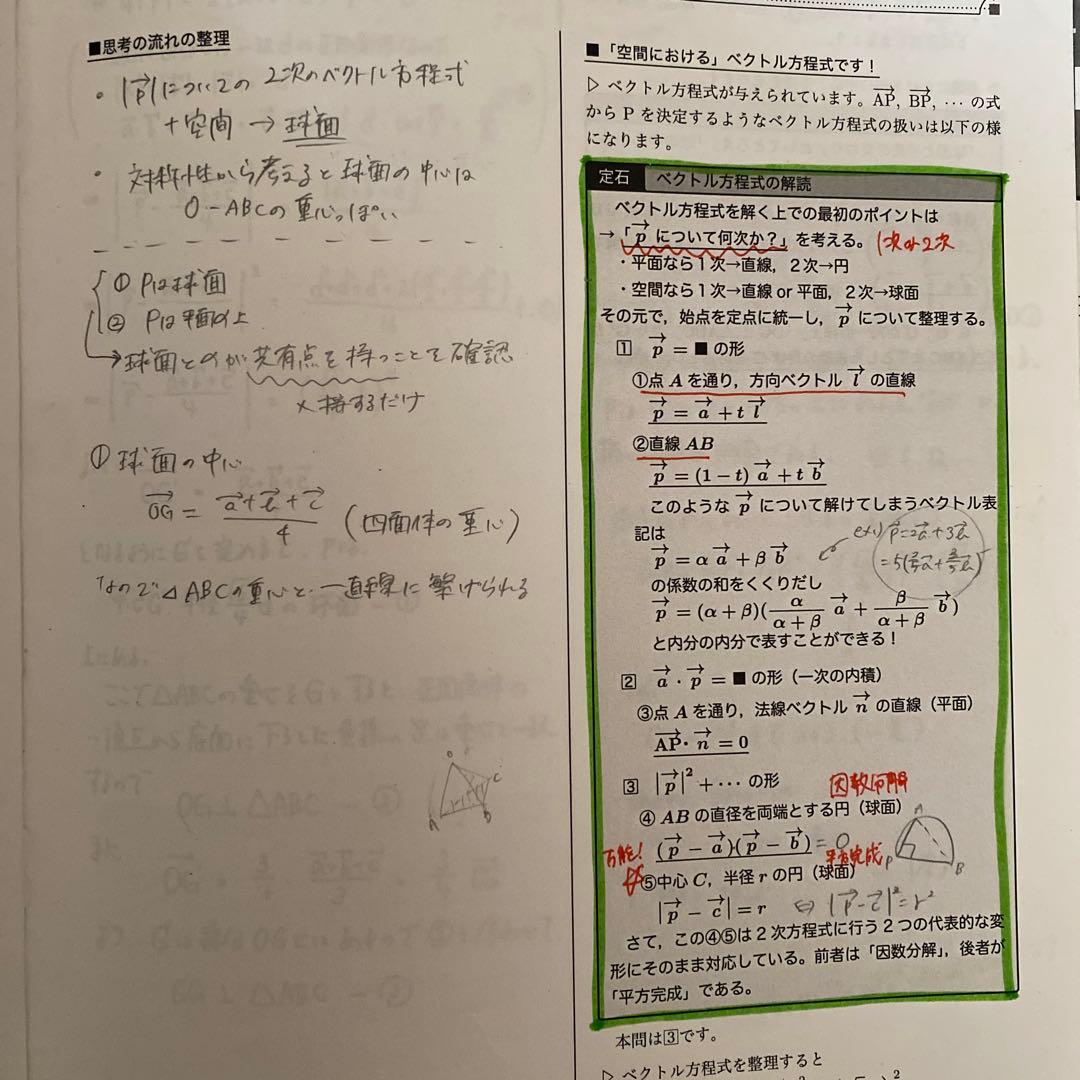 ■思考の流れの整理
・|p→|についての2次のベクトル方程式
+空間 → 球面
・対称性から考えると球面の中心は
O-ABCの重心っぽい
① Pは球面
② Pは平面の上
→球面と のが共有点を持つことを確認
×接するだけ
① 球面の中心
OG→ = (a→+b→+c→)/4 (四面体の重心)
なので△ABCの重心と一直線に繋げられる
O
C
A
B
■「空間における」ベクトル方程式です！
▷ ベクトル方程式が与えられています。AP→, BP→, … の式
から P を決定するようなベクトル方程式の扱いは以下の様
になります。
定石 ベクトル方程式の解読
ベクトル方程式を解く上での最初のポイントは
→「p→ について何次か？」を考える。 1次か2次
・平面なら1次→直線，2次→円
・空間なら1次→直線 or 平面，2次→球面
その元で，始点を定点に統一し，p→ について整理する。
1 p→ = ■ の形
①点 A を通り，方向ベクトル l→ の直線
p→ = a→ + t l→
②直線 AB
p→ = (1 − t) a→ + t b→
このような p→ について解けてしまうベクトル表
記は
ex) p→=2a→+3b→
p→ = α a→ + β b→
=5(2/5a→+3/5b→)
の係数の和をくくりだし
p→ = (α + β)(α/(α+β) a→ + β/(α+β) b→)
と内分の内分で表すことができる！
2 a→ · p→ = ■ の形（一次の内積）
③点 A を通り，法線ベクトル n→ の直線（平面）
AP→ · n→ = 0
3 |p→|² + ··· の形 因数分解
④ AB の直径を両端とする円（球面）
(p→ − a→)(p→ − b→) = 0 平方完成
A
P
B
万能！
⑤中心 C，半径 r の円（球面）
|p→ − c→| = r ⇔ |p→−c→|²=r²
さて，この④⑤は2次方程式に行う2つの代表的な変
形にそのまま対応している。前者は「因数分解」，後者が
「平方完成」である。
本問は3です。
▷ ベクトル方程式を整理すると